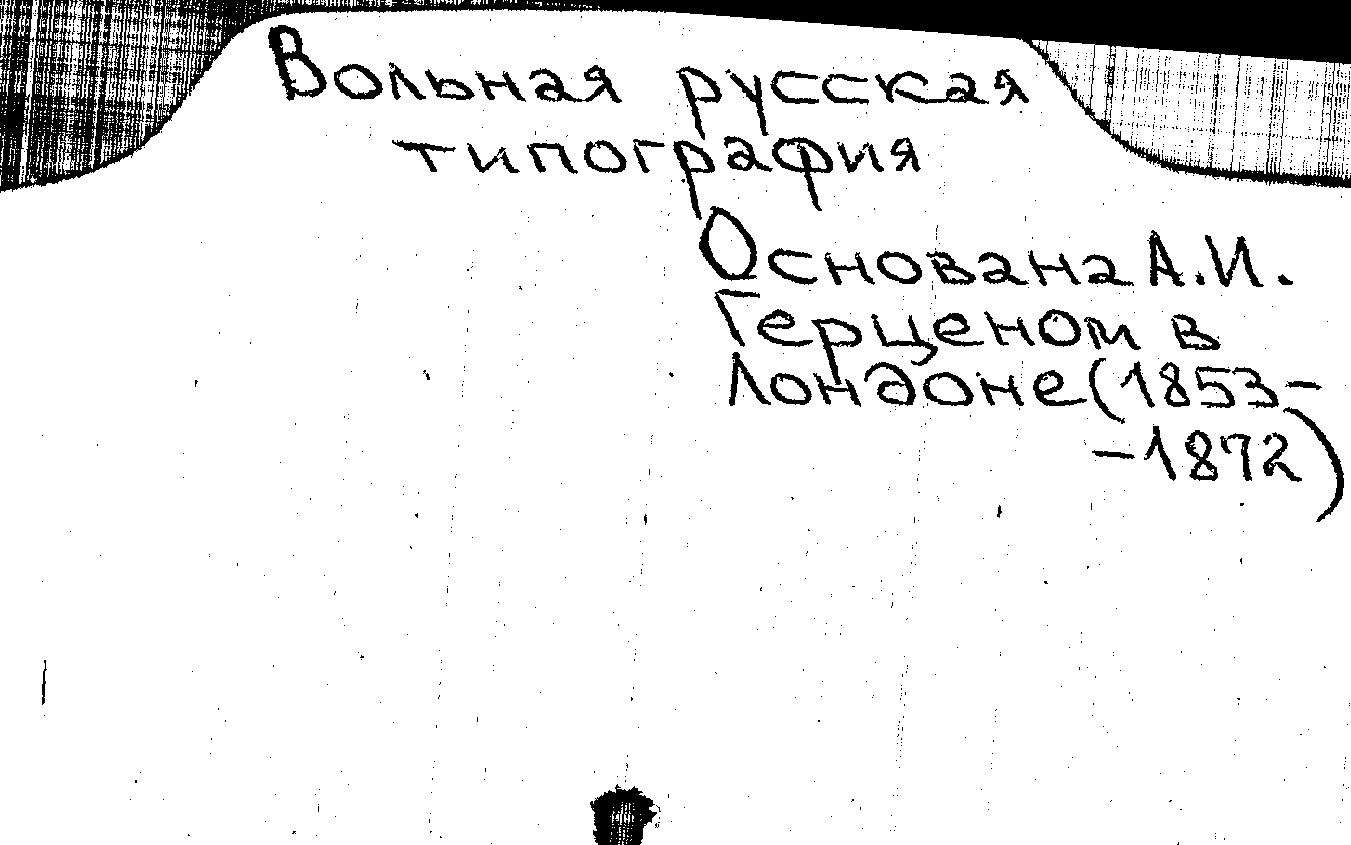 Вольная русская
типография
Основана А.И.
Герценом в
Лондоне (1853-
-1872)